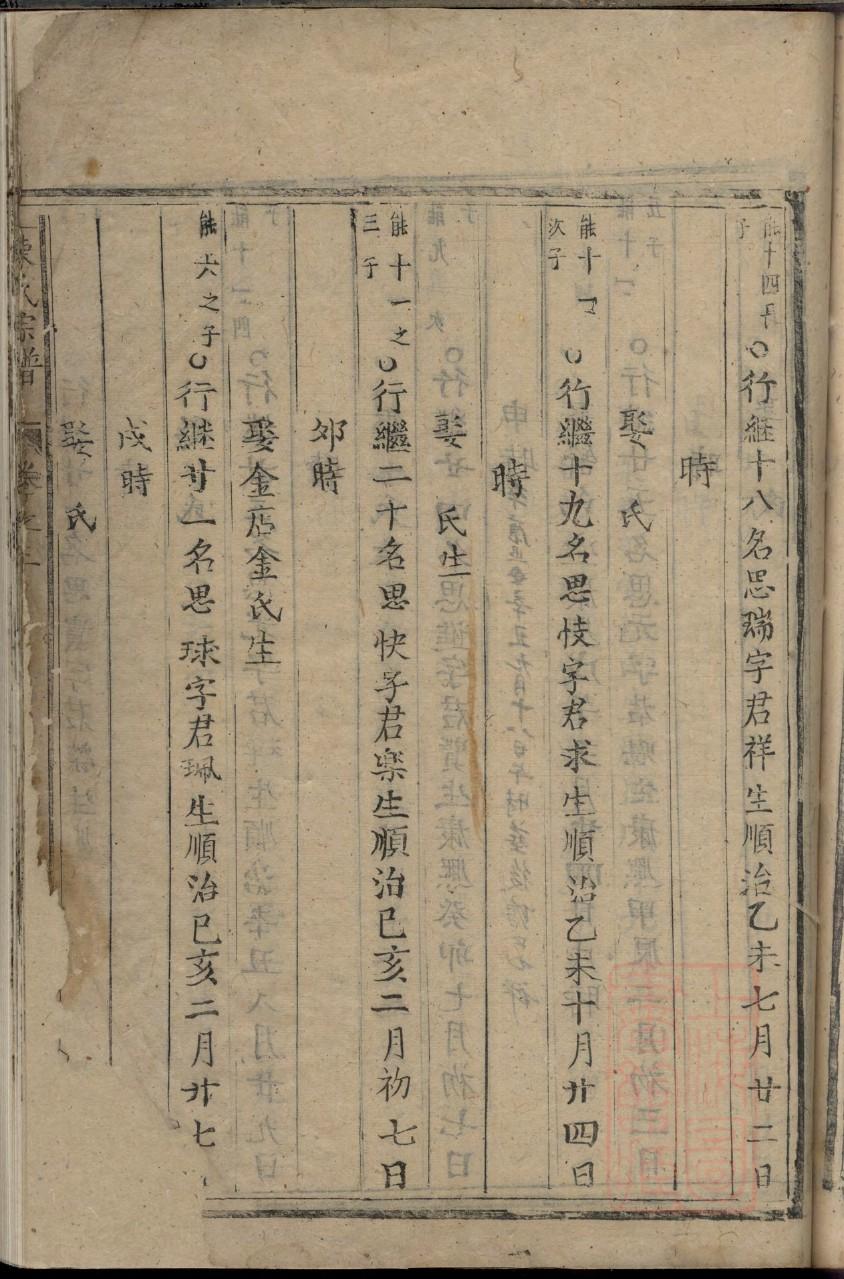 能十四子
子
○行继十八名思瑞字君祥生順治乙未七月廿二日
時
娶 氏
能十一
次子
○行繼十九名思忮字君求生順治乙未十月廿四日
時
娶 氏生
能十一之
三子
○行繼二十名思快字君楽生順治已亥二月初七日
卯時
娶金店金氏生
能六之子
○行継廿一名思球字君珮生順治已亥二月廿七
戌時
娶 氏
陳氏宗譜 卷之